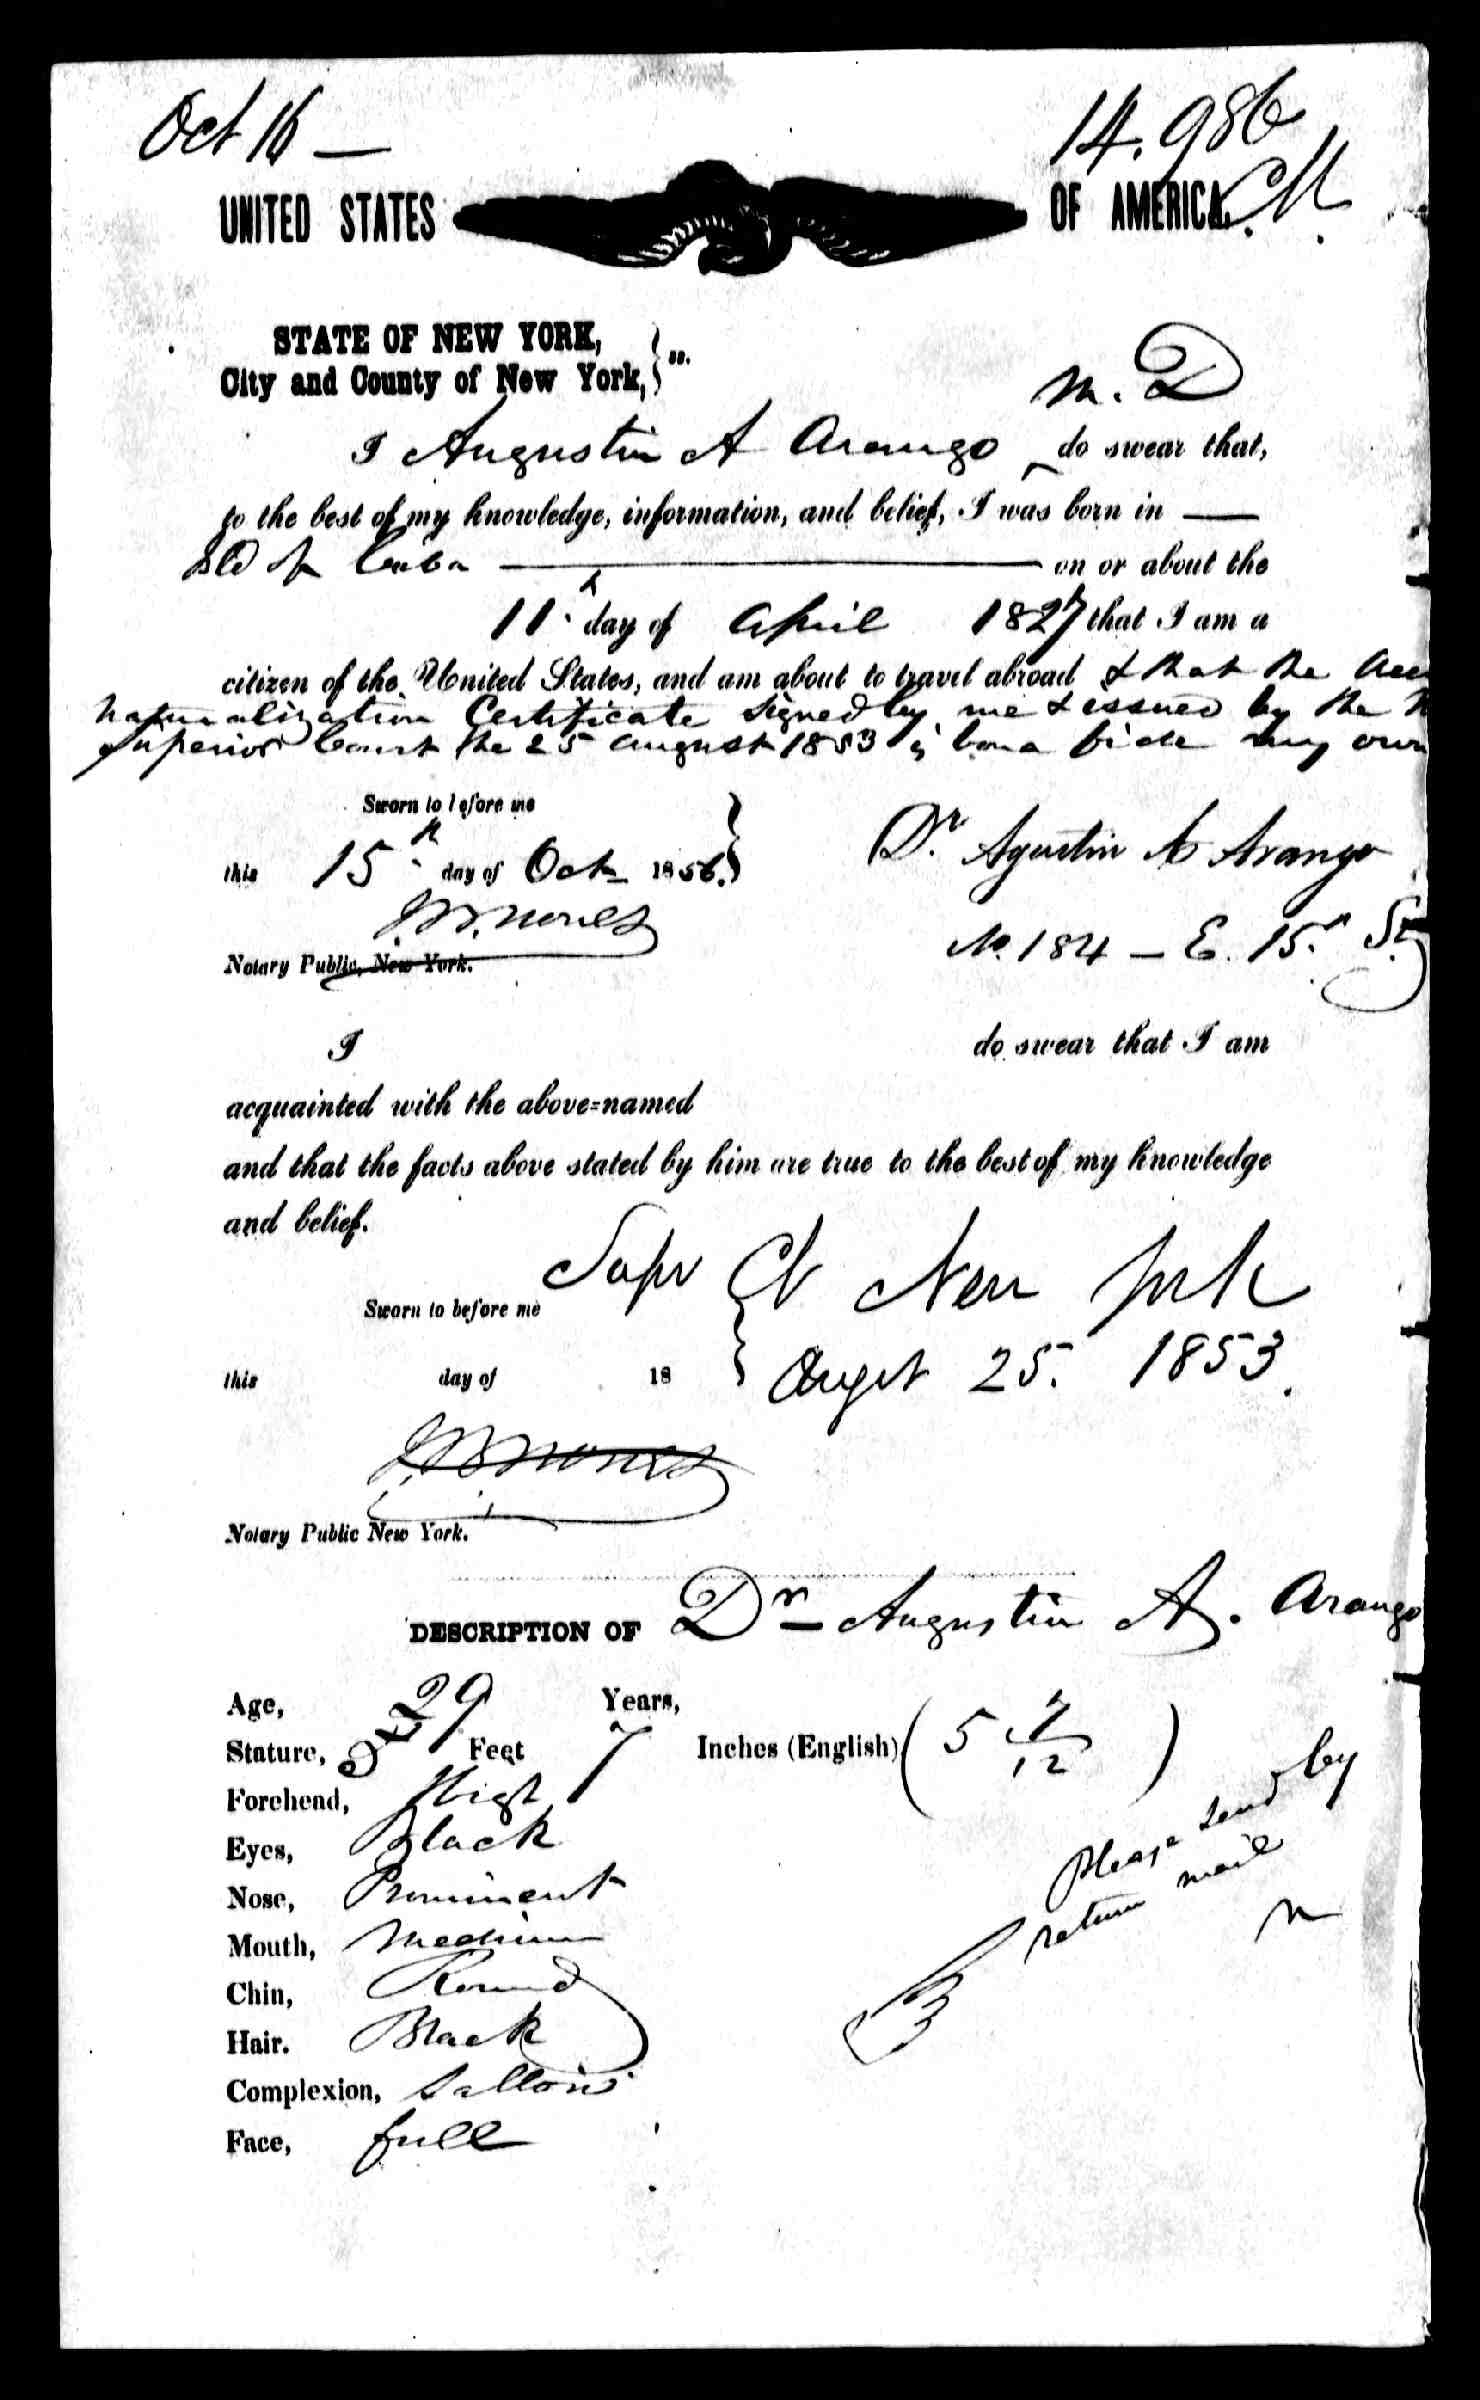 Oct 16 —
14.986
UNITED STATES OF AMERICA.
STATE OF NEW YORK,
City and County of New York, } ss.
M. D
I Augustin A Arango do swear that,
to the best of my knowledge, information, and belief, I was born in —
Isld of Cuba — on or about the
11.th day of April 1827 that I am a
citizen of the United States, and am about to travel abroad & that the
Naturalization Certificate signed by me & issued by the
Superior Court the 25 August 1853 is bona fide my own
Sworn to before me
this 15.th day of Oct 1856. }
Dr. Agustin A Arango
J. B. Nones
No. 184 — E. 15.th St.
Notary Public, New York.
I do swear that I am
acquainted with the above-named
and that the facts above stated by him are true to the best of my knowledge
and belief.
Supr Ct New York
Sworn to before me
this day of 18 } Augst 25. 1853.
J. B. Nones
Notary Public New York.
DESCRIPTION OF Dr Augustin A. Arango
Age, 29 Years,
Stature, 5 Feet 7 Inches (English) (5 7/12)
Forehead, High
Eyes, Black
Nose, Prominent
Mouth, Medium
Chin, Round
Hair. Black
Complexion, Sallow
Face, full
Please send by
return mail
N